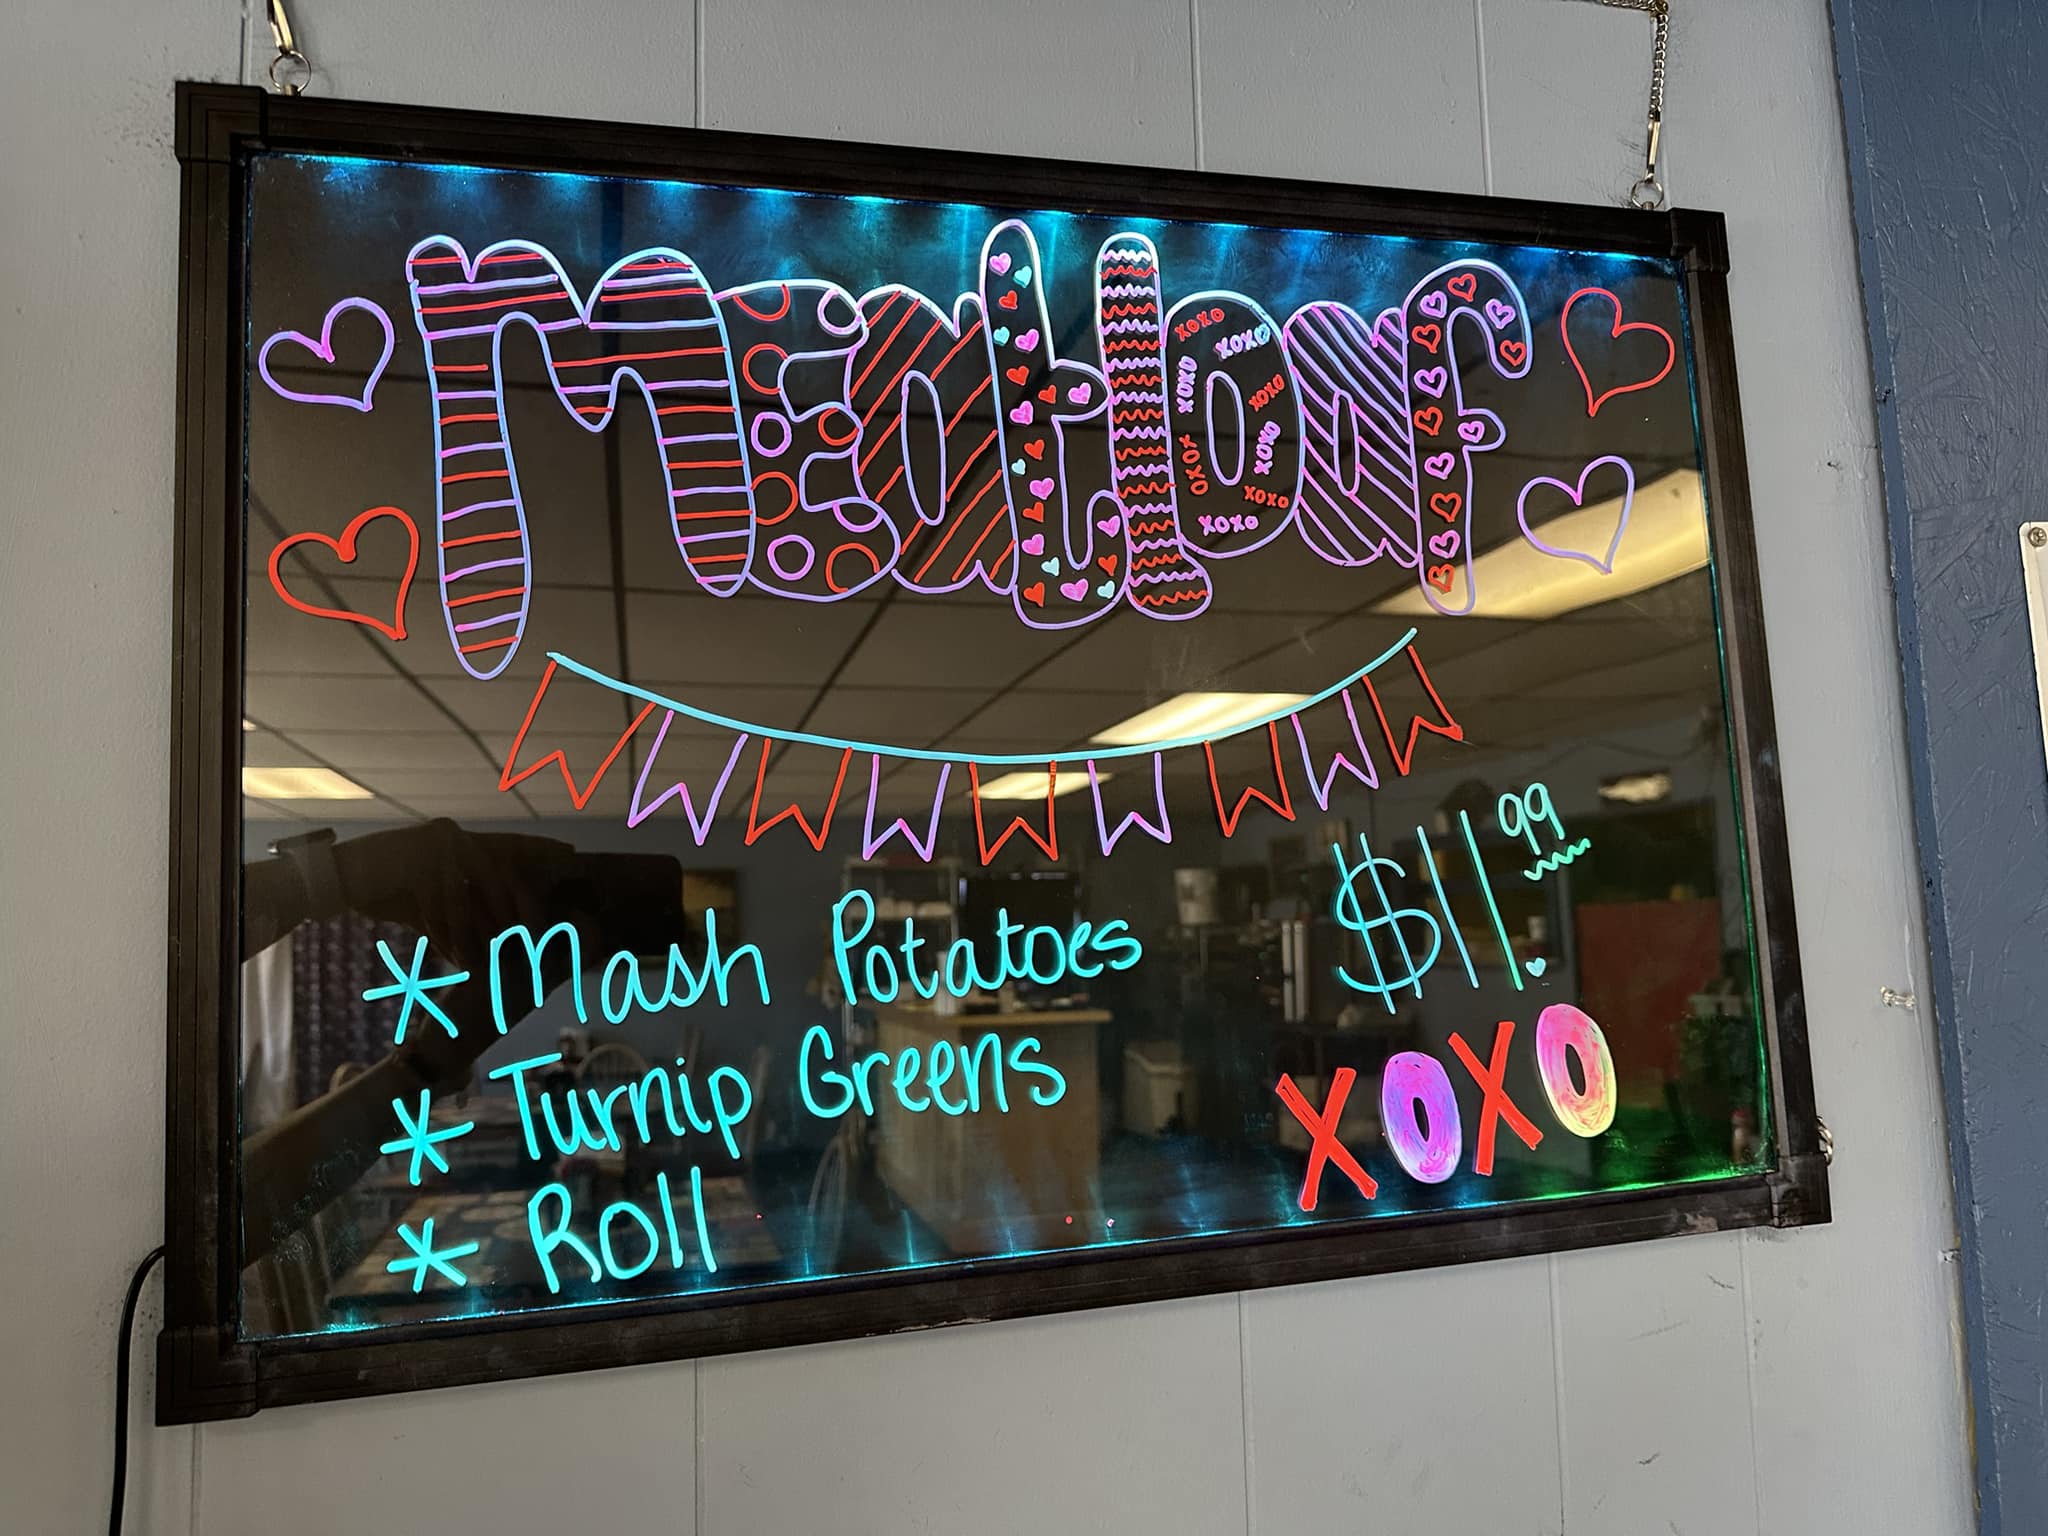 MEatloaf
XOXO
XOXO
XOXO
XOXO
XOXO
XOXO
XOXO
XOXO
$11.99
* Mash Potatoes
* Turnip Greens
* Roll
XOXO